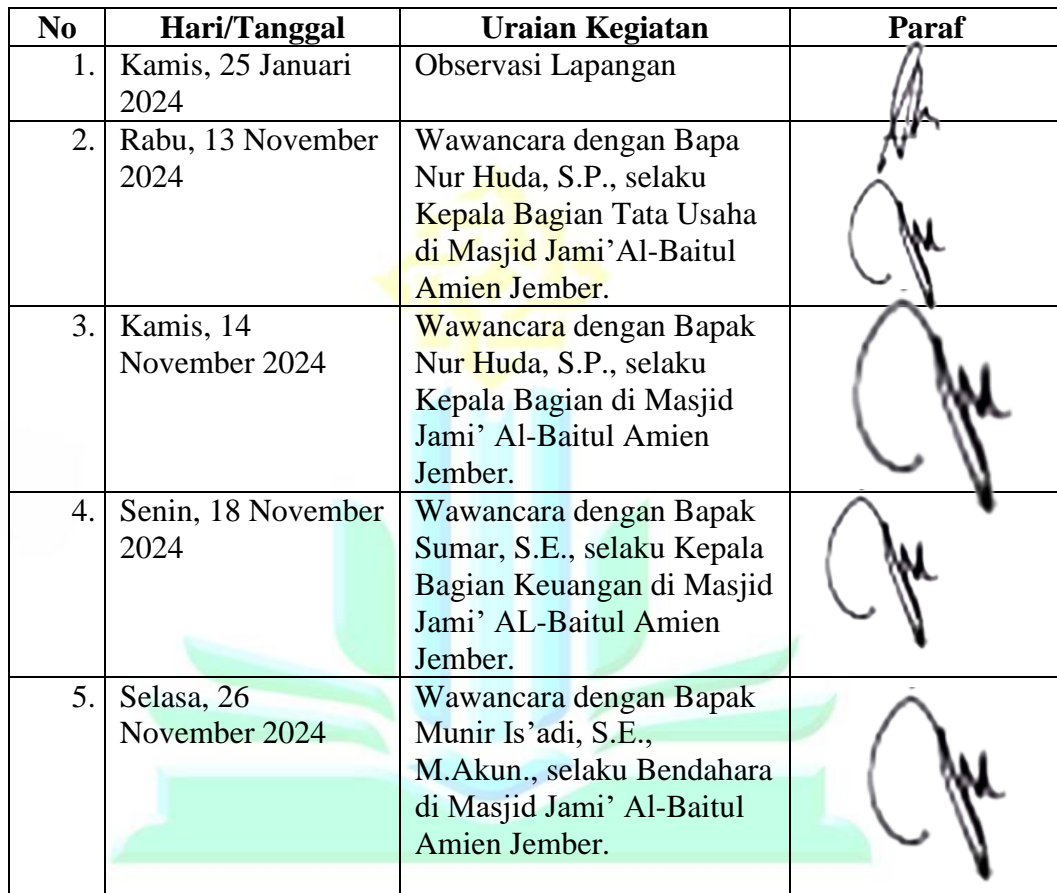 No Hari/Tanggal Uraian Kegiatan Paraf
1. Kamis, 25 Januari Observasi Lapangan
2024
2. Rabu, 13 November Wawancara dengan Bapa
2024 Nur Huda, S.P., selaku
Kepala Bagian Tata Usaha
di Masjid Jami’Al-Baitul
Amien Jember.
3. Kamis, 14 Wawancara dengan Bapak
November 2024 Nur Huda, S.P., selaku
Kepala Bagian di Masjid
Jami’ Al-Baitul Amien
Jember.
4. Senin, 18 November Wawancara dengan Bapak
2024 Sumar, S.E., selaku Kepala
Bagian Keuangan di Masjid
Jami’ AL-Baitul Amien
Jember.
5. Selasa, 26 Wawancara dengan Bapak
November 2024 Munir Is’adi, S.E.,
M.Akun., selaku Bendahara
di Masjid Jami’ Al-Baitul
Amien Jember.